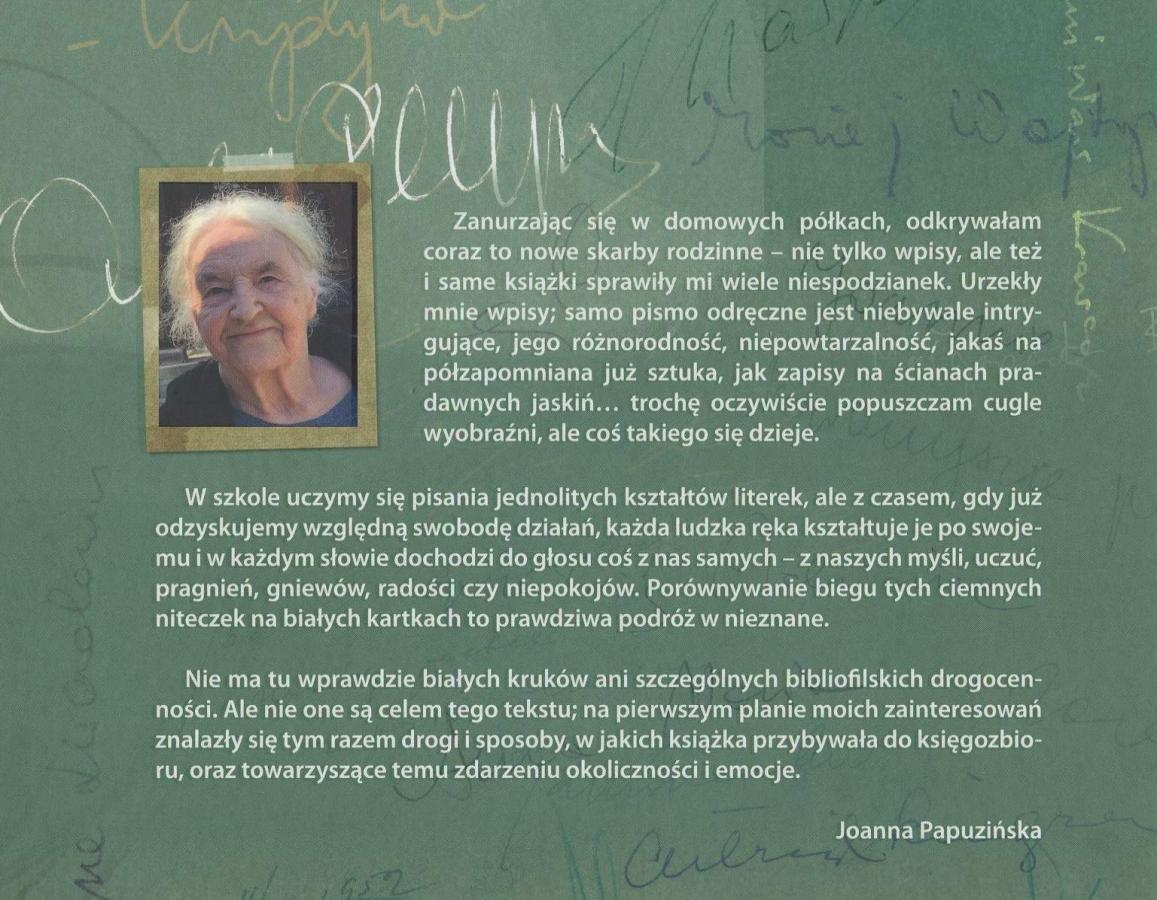 Zanurzając się w domowych półkach, odkrywałam
coraz to nowe skarby rodzinne – nie tylko wpisy, ale też
i same książki sprawiły mi wiele niespodzianek. Urzekły
mnie wpisy; samo pismo odręczne jest niebywale intry-
gujące, jego różnorodność, niepowtarzalność, jakaś na
półzapomniana już sztuka, jak zapisy na ścianach pra-
dawnych jaskiń… trochę oczywiście popuszczam cugle
wyobraźni, ale coś takiego się dzieje.
W szkole uczymy się pisania jednolitych kształtów literek, ale z czasem, gdy już
odzyskujemy względną swobodę działań, każda ludzka ręka kształtuje je po swoje-
mu i w każdym słowie dochodzi do głosu coś z nas samych – z naszych myśli, uczuć,
pragnień, gniewów, radości czy niepokojów. Porównywanie biegu tych ciemnych
niteczek na białych kartkach to prawdziwa podróż w nieznane.
Nie ma tu wprawdzie białych kruków ani szczególnych bibliofilskich drogocen-
ności. Ale nie one są celem tego tekstu; na pierwszym planie moich zainteresowań
znalazły się tym razem drogi i sposoby, w jakich książka przybywała do księgozbio-
ru, oraz towarzyszące temu zdarzeniu okoliczności i emocje.
Joanna Papuzińska
1952